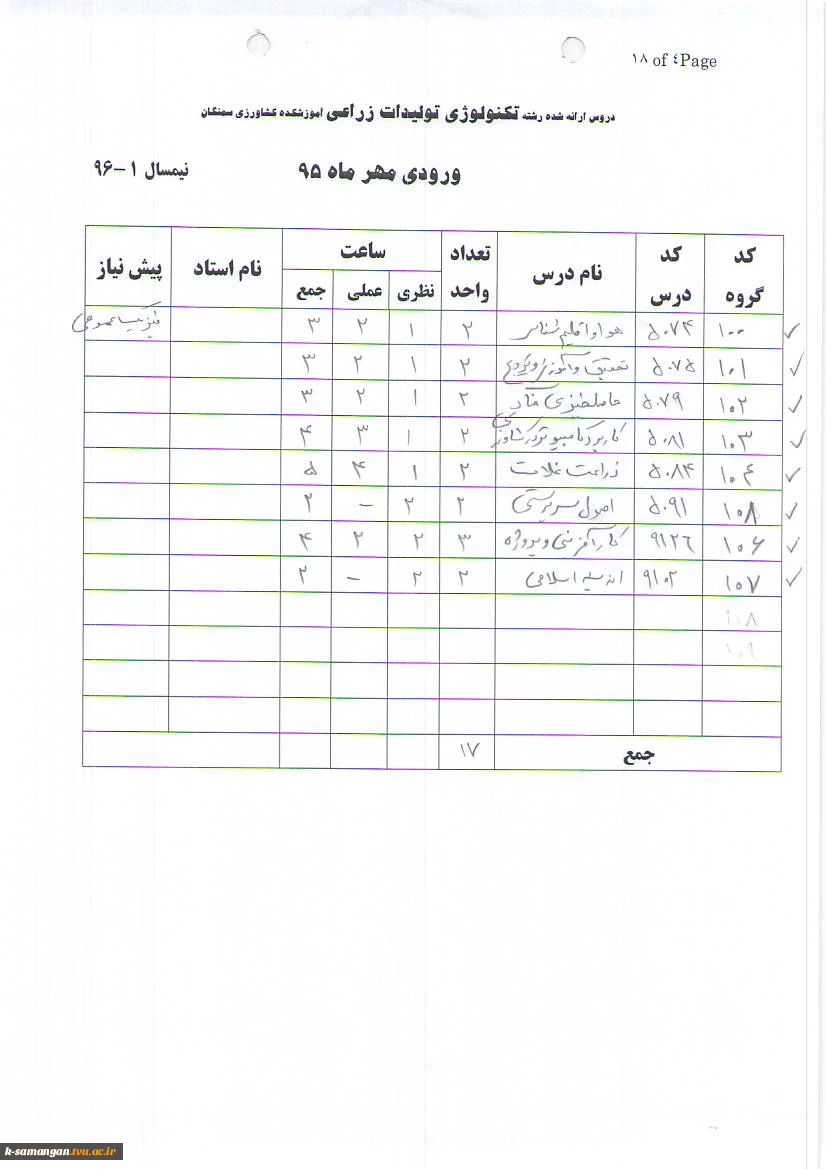 ١٨ of ٤Page
دروس ارائه شده رشته تکنولوژی تولیدات زراعی آموزشکده کشاورزی سمنگان
ورودی مهر ماه ۹۵ نیمسال ۱-۹۶
کد گروه کد درس نام درس تعداد واحد ساعت نام استاد پیش نیاز
نظری عملی جمع
۱۰۰ ۵۰۷۴ هوا و اقلیم شناسی ۲ ۱ ۲ ۳ فیزیک عمومی
۱۰۱ ۵۰۷۵ تحقیق و آموزش و ترویج ۲ ۱ ۲ ۳
۱۰۲ ۵۰۷۹ حاصلخیزی خاک ۲ ۱ ۲ ۳
۱۰۳ ۵۰۸۱ کاربرد کامپیوتر در کشاورزی ۲ ۱ ۳ ۴
۱۰۴ ۵۰۸۴ زراعت غلات ۲ ۱ ۴ ۵
۱۰۵ ۵۰۹۱ اصول سرپرستی ۲ ۲ - ۲
۱۰۶ ۹۱۲۶ کارآفرینی و پروژه ۳ ۲ ۲ ۴
۱۰۷ ۹۱۰۲ اندیشه اسلامی ۲ ۲ - ۲
۱۰۸
۱۰۹
جمع ۱۷
k-samangan.tvu.ac.ir